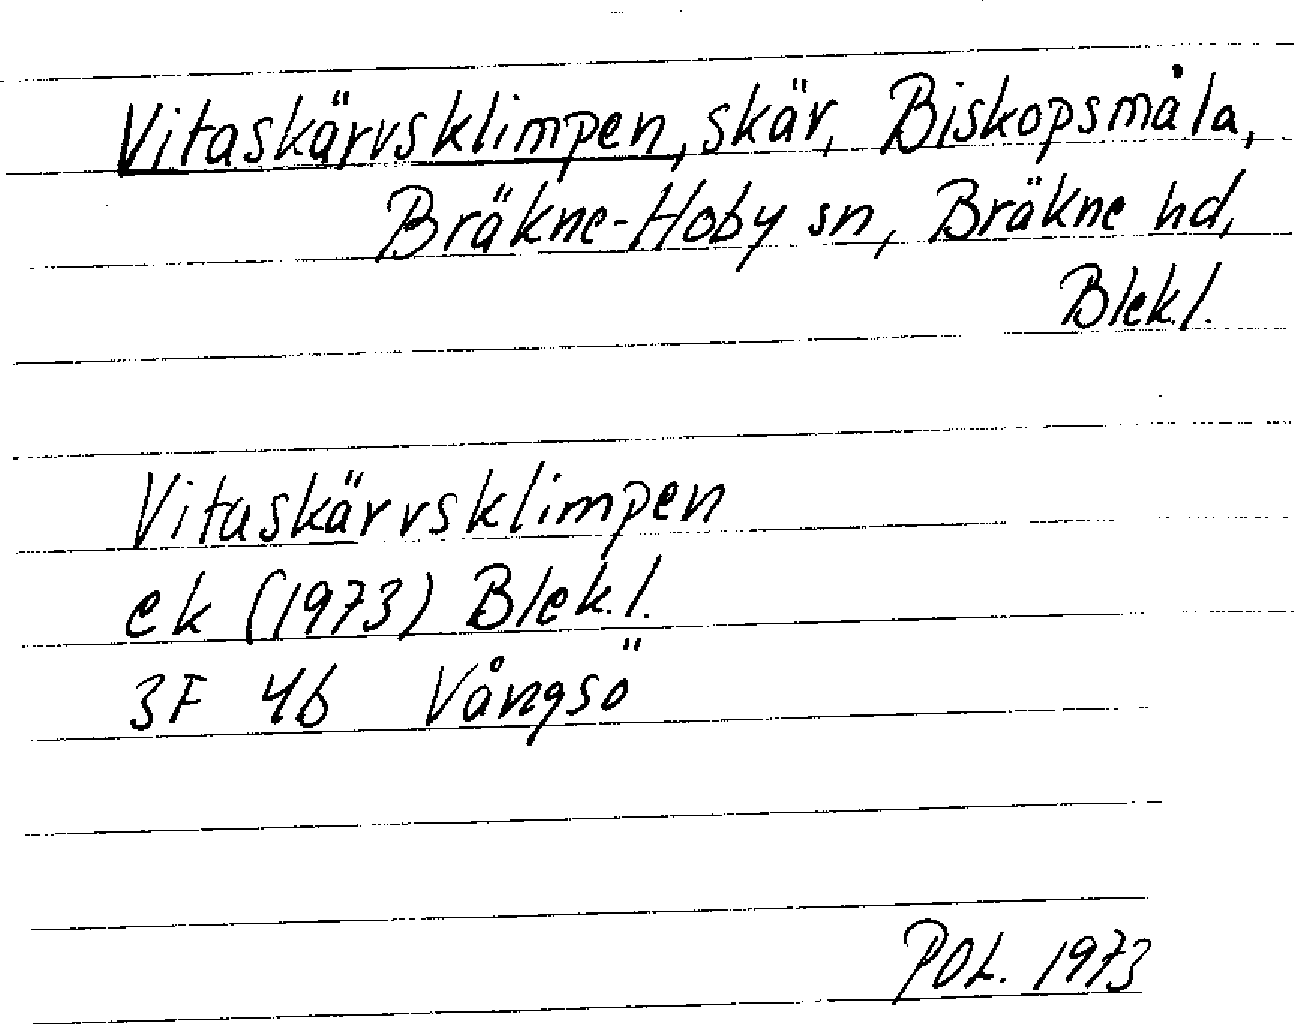 Vitaskärvsklimpen, skär, Biskopsmåla,
Bräkne-Hoby sn, Bräkne hd,
Blek.l.
Vitaskärvsklimpen
ek (1973) Blek.l.
3F 4b Vångsö
POL. 1973